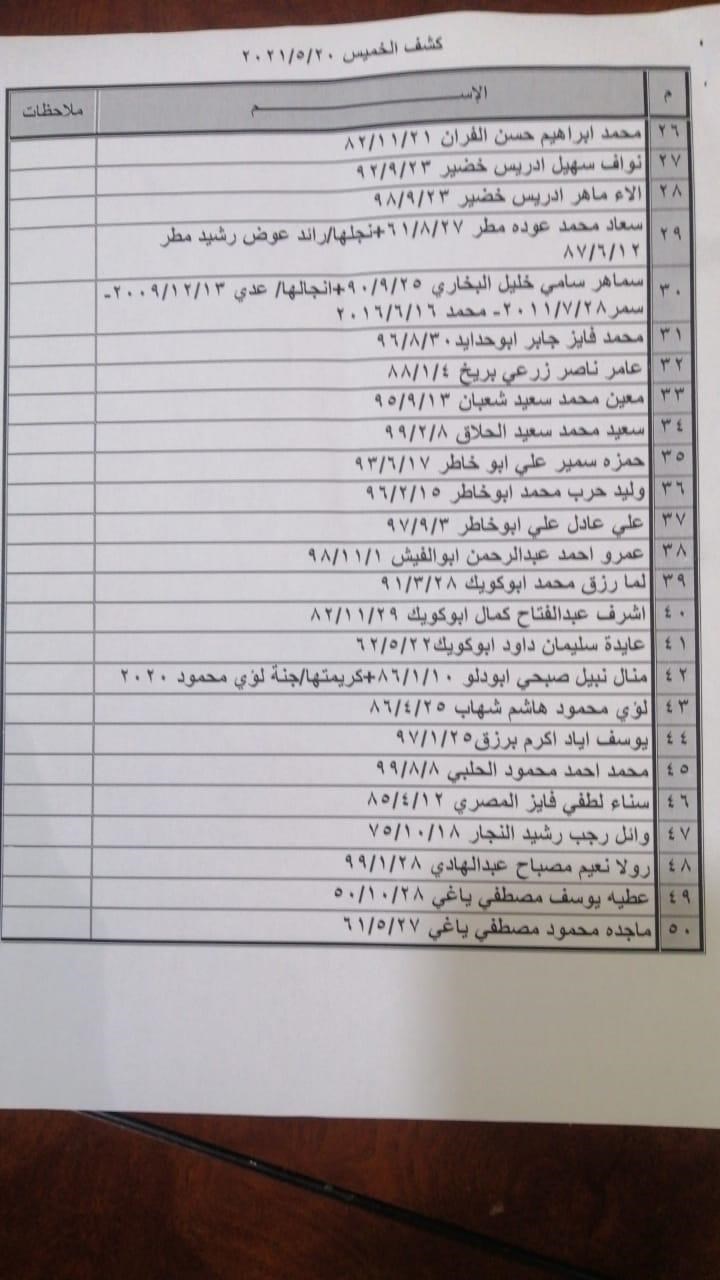 كشف الخميس ٢٠٢١/٥/٢٠
م الإســـــــــم ملاحظات
٢٦ محمد ابراهيم حسن الفران ٨٢/١١/٢١
٢٧ نواف سهيل ادريس خضير ٩٢/٩/٢٣
٢٨ الاء ماهر ادريس خضير ٩٨/٩/٢٣
٢٩ سعاد محمد عوده مطر ٦١/٨/٢٧+نجلها/رائد عوض رشيد مطر
٨٧/٦/١٢
٣٠ سماهر سامي خليل البخاري ٩٠/٩/٢٥+انجالها/ عدي ٢٠٠٩/١٢/١٣-
سمر٢٠١١/٧/٢٨- محمد ٢٠١٦/٦/١٦
٣١ محمد فايز جابر ابوحدايد٩٦/٨/٣٠
٣٢ عامر ناصر زرعي بريخ ٨٨/١/٤
٣٣ معين محمد سعيد شعبان ٩٥/٩/١٣
٣٤ سعيد محمد سعيد الحلاق ٩٩/٢/٨
٣٥ حمزه سمير علي ابو خاطر ٩٣/٦/١٧
٣٦ وليد حرب محمد ابوخاطر ٩٦/٢/١٥
٣٧ علي عادل علي ابوخاطر ٩٧/٩/٣
٣٨ عمرو احمد عبدالرحمن ابوالفيش ٩٨/١١/١
٣٩ لما رزق محمد ابوكويك ٩١/٣/٢٨
٤٠ اشرف عبدالفتاح كمال ابوكويك ٨٢/١١/٢٩
٤١ عايدة سليمان داود ابوكويك٦٢/٥/٢٢
٤٢ منال نبيل صبحي ابودلو ٨٦/١/١٠+كريمتها/جنة لؤي محمود ٢٠٢٠
٤٣ لؤي محمود هاشم شهاب ٨٦/٤/٢٥
٤٤ يوسف اياد اكرم برزق٩٧/١/٢٥
٤٥ محمد احمد محمود الحلبي ٩٩/٨/٨
٤٦ سناء لطفي فايز المصري ٨٥/٤/١٢
٤٧ وائل رجب رشيد النجار ٧٥/١٠/١٨
٤٨ رولا نعيم مصباح عبدالهادي ٩٩/١/٢٨
٤٩ عطيه يوسف مصطفي ياغي ٥٠/١٠/٢٨
٥٠ ماجده محمود مصطفي ياغي ٦١/٥/٢٧